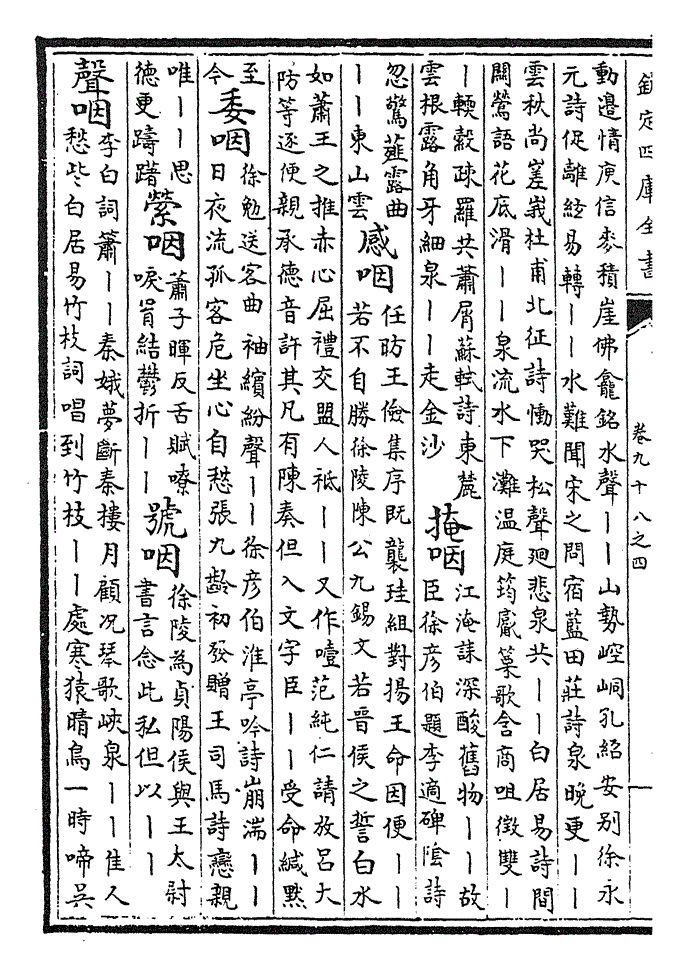 欽定四庫全書
卷九十八之四
一
動邉情庾信麥積崖佛龕銘水聲丨丨山勢崆峒孔紹安别徐永
元詩促離絃易轉丨丨水難聞宋之問宿藍田莊詩泉晚更丨丨
雲秋尚嵳峩杜甫北征詩慟哭松聲廻悲泉共丨丨白居易詩間
關鶯語花底滑丨丨泉流水下灘温庭筠觱篥歌含商咀徵雙丨
丨輭縠疎羅共蕭屑蘇軾詩東麓
雲根露角牙細泉丨丨走金沙
掩咽
江淹誄深酸舊物丨丨故
臣徐彦伯題李適碑隂詩
忽驚薤露曲
丨丨東山雲
感咽
任昉王儉集序既襲珪組對揚王命因便丨丨
若不自勝徐陵陳公九錫文若晉侯之誓白水
如蕭王之推赤心屈禮交盟人祗丨丨又作噎范純仁請放呂大
防等逐便親承德音許其凡有陳奏但入文字臣丨丨受命緘黙
至
今
委咽
徐勉送客曲袖繽紛聲丨丨徐彦伯淮亭吟詩崩湍丨丨
日夜流孤客危坐心自愁張九齡初發贈王司馬詩戀親
唯丨丨思
德更躊躇
縈咽
蕭子暉反舌賦嘹
唳肎結鬱折丨丨
號咽
徐陵為貞陽侯與王太尉
書言念此私但以丨丨
聲咽
李白詞簫丨丨秦娥夢斷秦樓月顧况琴歌峽泉丨丨佳人
愁些白居易竹枝詞唱到竹枝丨丨處寒猿晴鳥一時啼吴